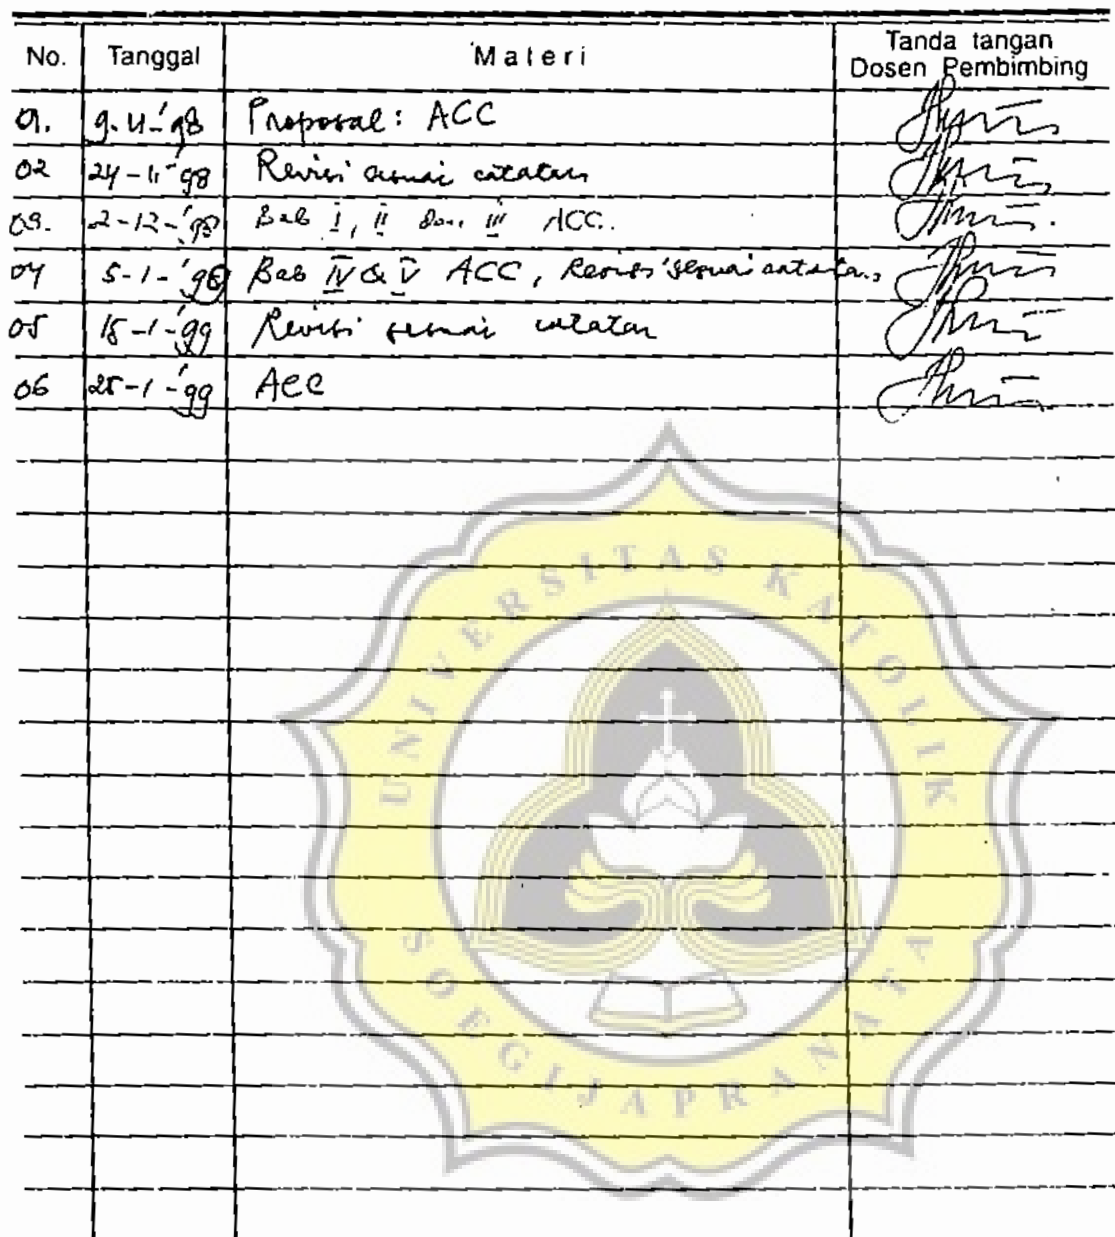 No. Tanggal Materi Tanda tangan
Dosen Pembimbing
01. 9-11-'98 Proposal: ACC
02 24-11-'98 Revisi sesuai catatan
03. 2-12-'98 Bab I, II dan III ACC.
04 5-1-'98 Bab IV & V ACC, Revisi sesuai catatan
05 18-1-'99 Revisi sesuai catatan
06 25-1-'99 ACC
UNIVERSITAS KATOLIK
SOEGIJAPRANATA